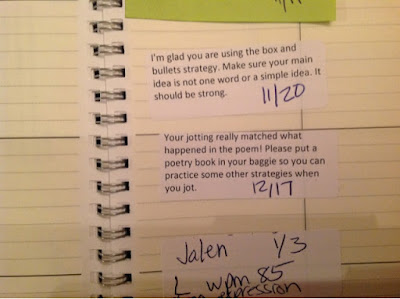 I'm glad you are using the box and
bullets strategy. Make sure your main
idea is not one word or a simple idea. It
should be strong.
11/20
Your jotting really matched what
happened in the poem! Please put a
poetry book in your baggie so you can
practice some other strategies when
you jot.
12/17
Jalen 1/3
L wpm 85
expression